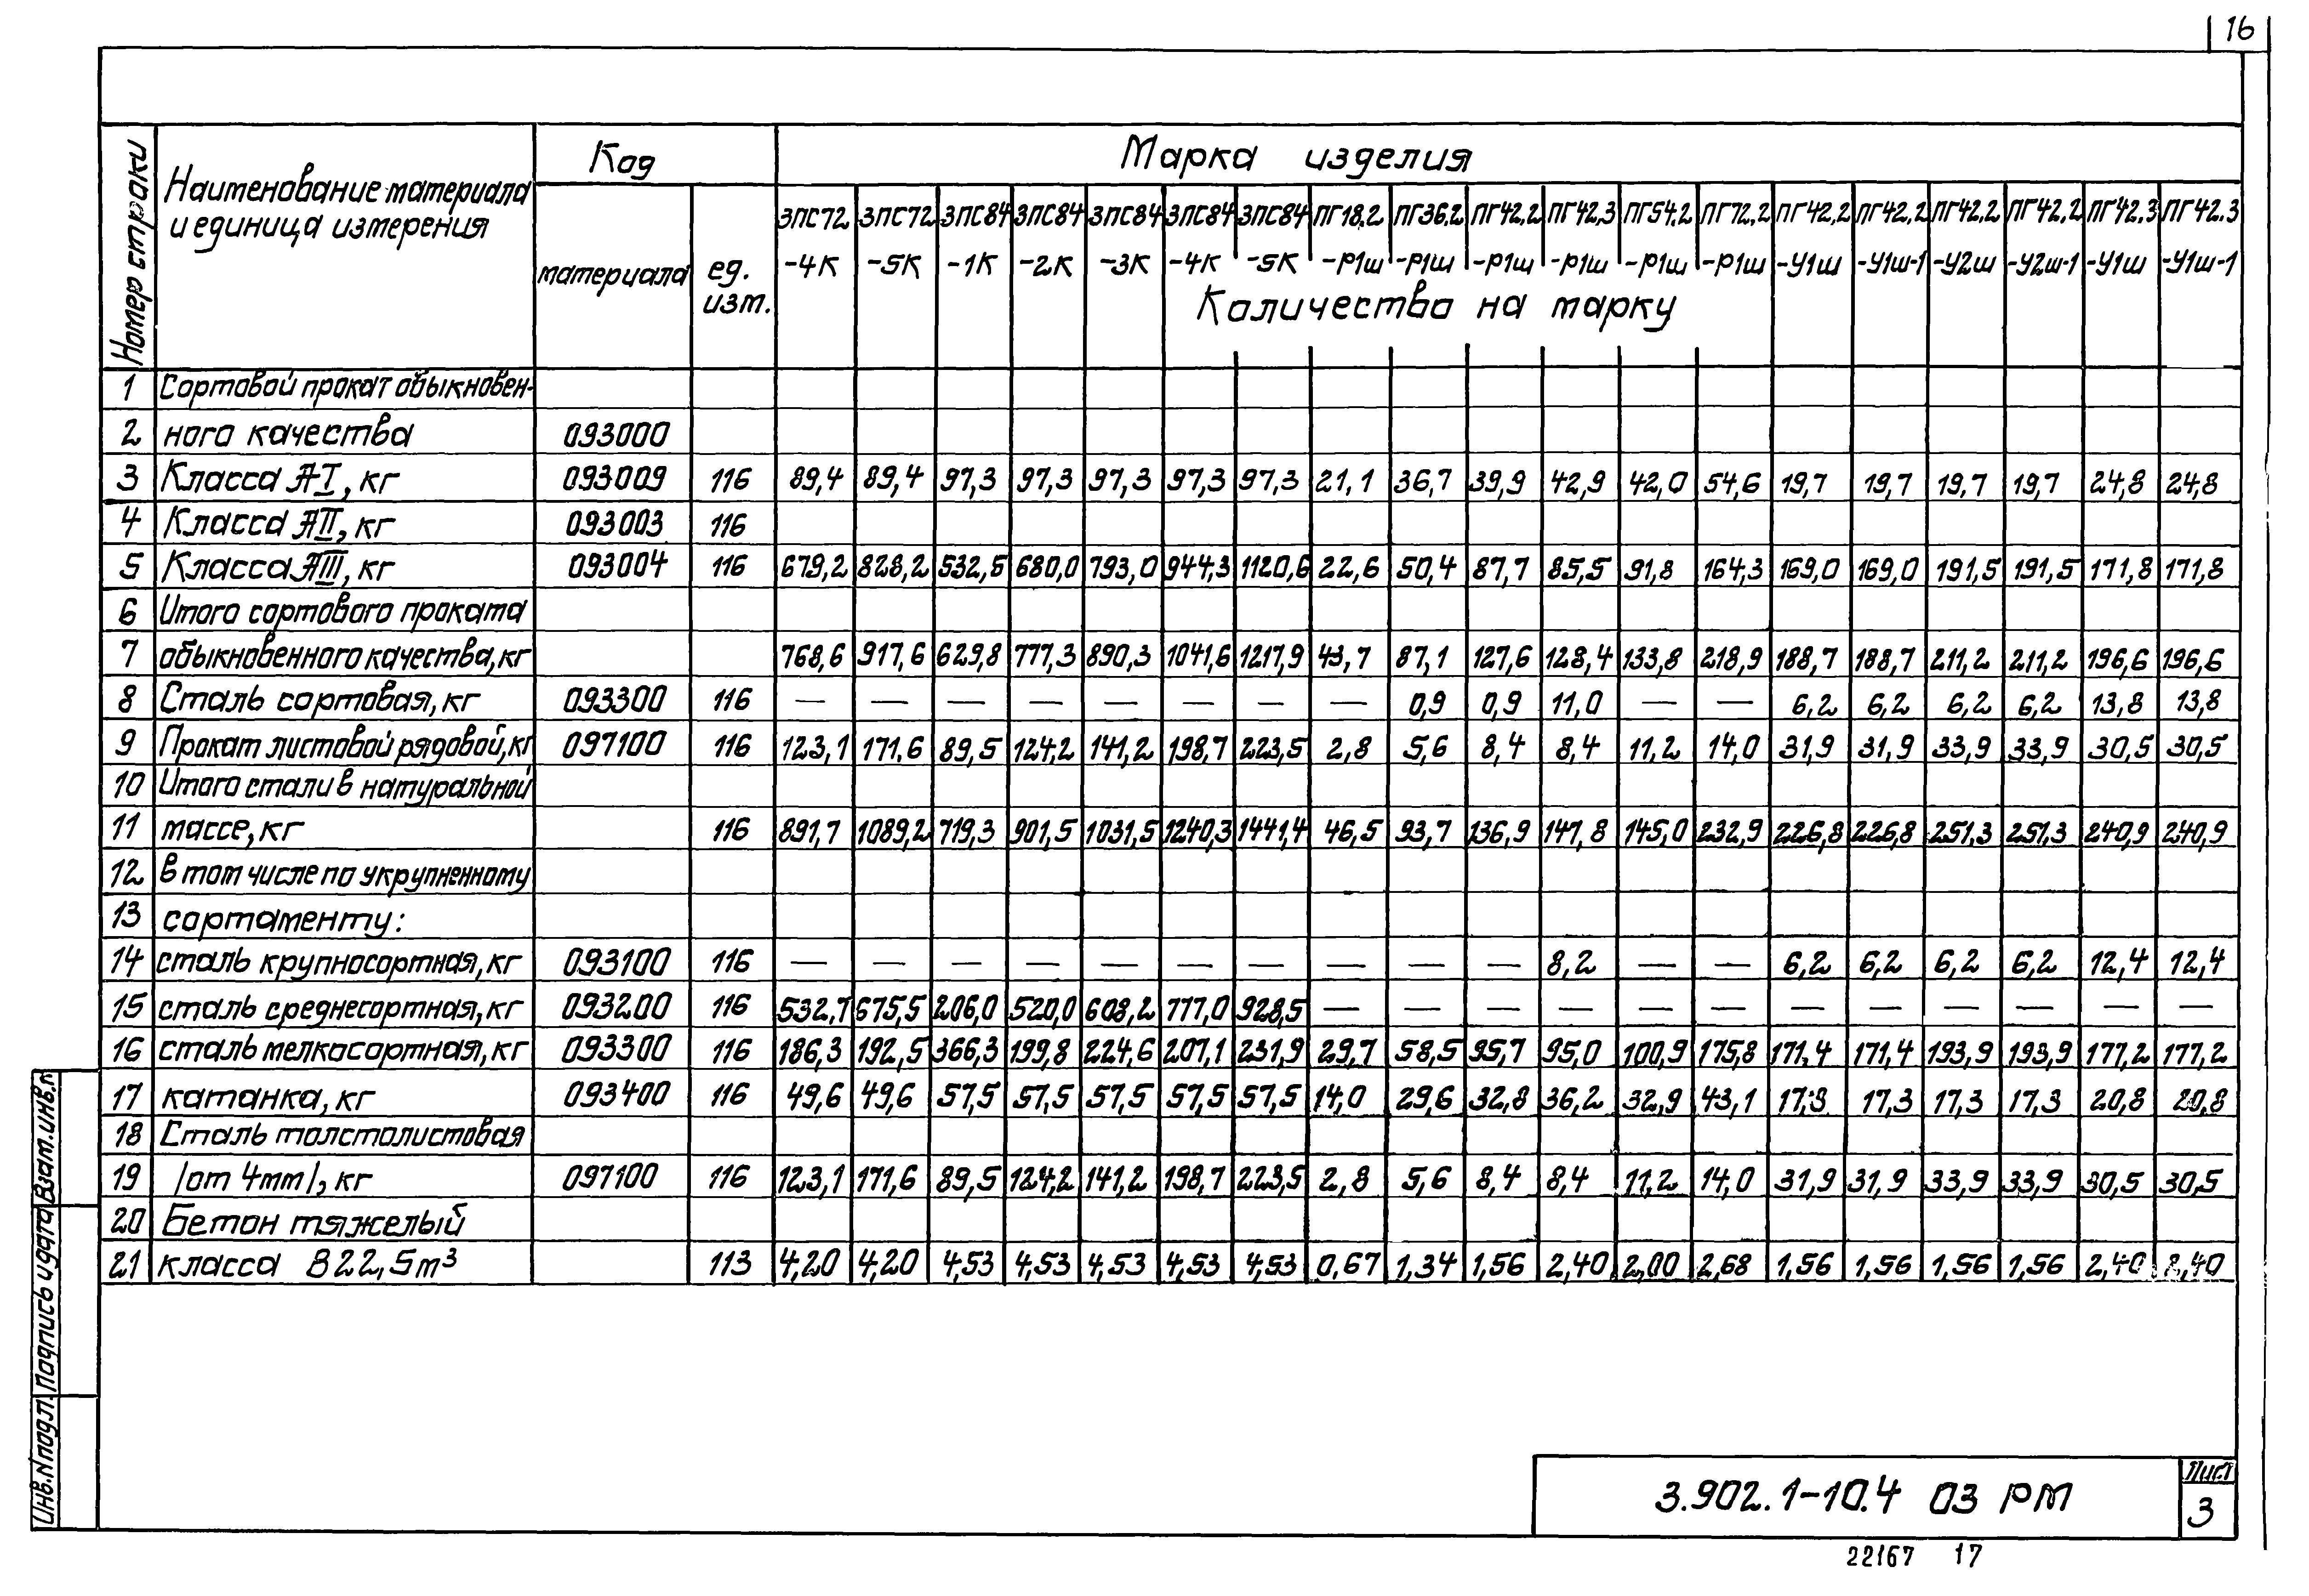 16
Номер строки
Наименование материала
и единица измерения
Код
материала
ед. изм.
Марка изделия
ЗПС72 ЗПС72 ЗПС84 ЗПС84 ЗПС84 ЗПС84 ЗПС84 ПГ18.2 ПГ36.2 ПГ42.2 ПГ42.3 ПГ54.2 ПГ72.2 ПГ42.2 ПГ42.2 ПГ42.2 ПГ42.2 ПГ42.3 ПГ42.3
-4К -5К -1К -2К -3К -4К -5К -Р1ш -Р1ш -Р1ш -Р1ш -Р1ш -Р1ш -У1ш -У1ш-1 -У2ш -У2ш-1 -У1ш -У1ш-1
Количество на марку
1 Сортовой прокат обыкновен-
2 ного качества 093000
3 Класса АI, кг 093009 116 89,4 89,4 97,3 97,3 97,3 97,3 97,3 21,1 36,7 39,9 42,9 42,0 54,6 19,7 19,7 19,7 19,7 24,8 24,8
4 Класса АII, кг 093003 116
5 Класса АIII, кг 093004 116 679,2 828,2 532,5 680,0 793,0 944,3 1120,6 22,6 50,4 87,7 85,5 91,8 164,3 169,0 169,0 191,5 191,5 171,8 171,8
6 Итого сортового проката
7 обыкновенного качества, кг 768,6 917,6 629,8 777,3 890,3 1041,6 1217,9 43,7 87,1 127,6 128,4 133,8 218,9 188,7 188,7 211,2 211,2 196,6 196,6
8 Сталь сортовая, кг 093300 116 — — — — — — — — 0,9 0,9 11,0 — — 6,2 6,2 6,2 6,2 13,8 13,8
9 Прокат листовой рядовой, кг 097100 116 123,1 171,6 89,5 124,2 141,2 198,7 223,5 2,8 5,6 8,4 8,4 11,2 14,0 31,9 31,9 33,9 33,9 30,5 30,5
10 Итого стали в натуральной
11 массе, кг 116 891,7 1089,2 719,3 901,5 1031,5 1240,3 1441,4 46,5 93,7 136,9 147,8 145,0 232,9 226,8 226,8 251,3 251,3 240,9 240,9
12 в том числе по укрупненному
13 сортаменту:
14 сталь крупносортная, кг 093100 116 — — — — — — — — — — 8,2 — — 6,2 6,2 6,2 6,2 12,4 12,4
15 сталь среднесортная, кг 093200 116 532,7 675,5 206,0 520,0 608,2 777,0 928,5 — — — — — — — — — — — —
16 сталь мелкосортная, кг 093300 116 186,3 192,5 366,3 199,8 224,6 207,1 231,9 29,7 58,5 95,7 95,0 100,9 175,8 171,4 171,4 193,9 193,9 177,2 177,2
17 катанка, кг 093400 116 49,6 49,6 57,5 57,5 57,5 57,5 57,5 14,0 29,6 32,8 36,2 32,9 43,1 17,3 17,3 17,3 17,3 20,8 20,8
18 Сталь толстолистовая
19 /от 4мм/, кг 097100 116 123,1 171,6 89,5 124,2 141,2 198,7 223,5 2,8 5,6 8,4 8,4 11,2 14,0 31,9 31,9 33,9 33,9 30,5 30,5
20 Бетон тяжелый
21 класса В22,5 м³ 113 4,20 4,20 4,53 4,53 4,53 4,53 4,53 0,67 1,34 1,56 2,40 2,00 2,68 1,56 1,56 1,56 1,56 2,40 2,40
Инв.N подл. Подпись и дата Взам.инв.N
3.902.1-10.4 03 РМ
Лист
3
22167 17